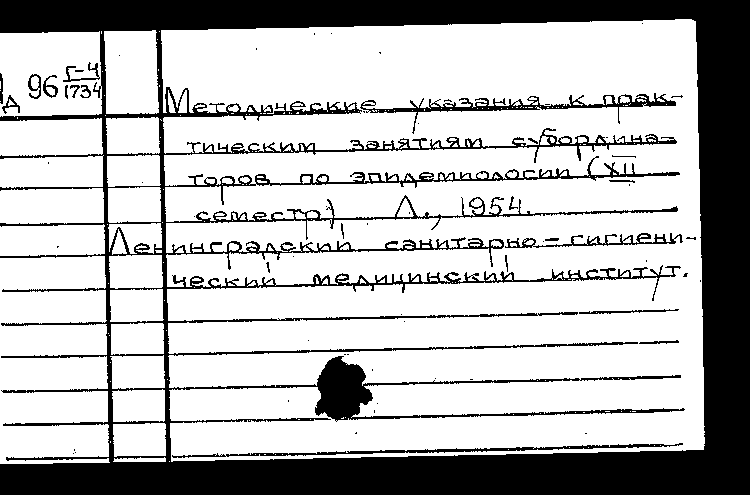 Д 96 Г-4/1734
Методические указания к прак-
тическим занятиям субордина-
торов по эпидемиологии (XII
семестр) Л., 1954.
Ленинградский санитарно-гигиени-
ческий медицинский институт.